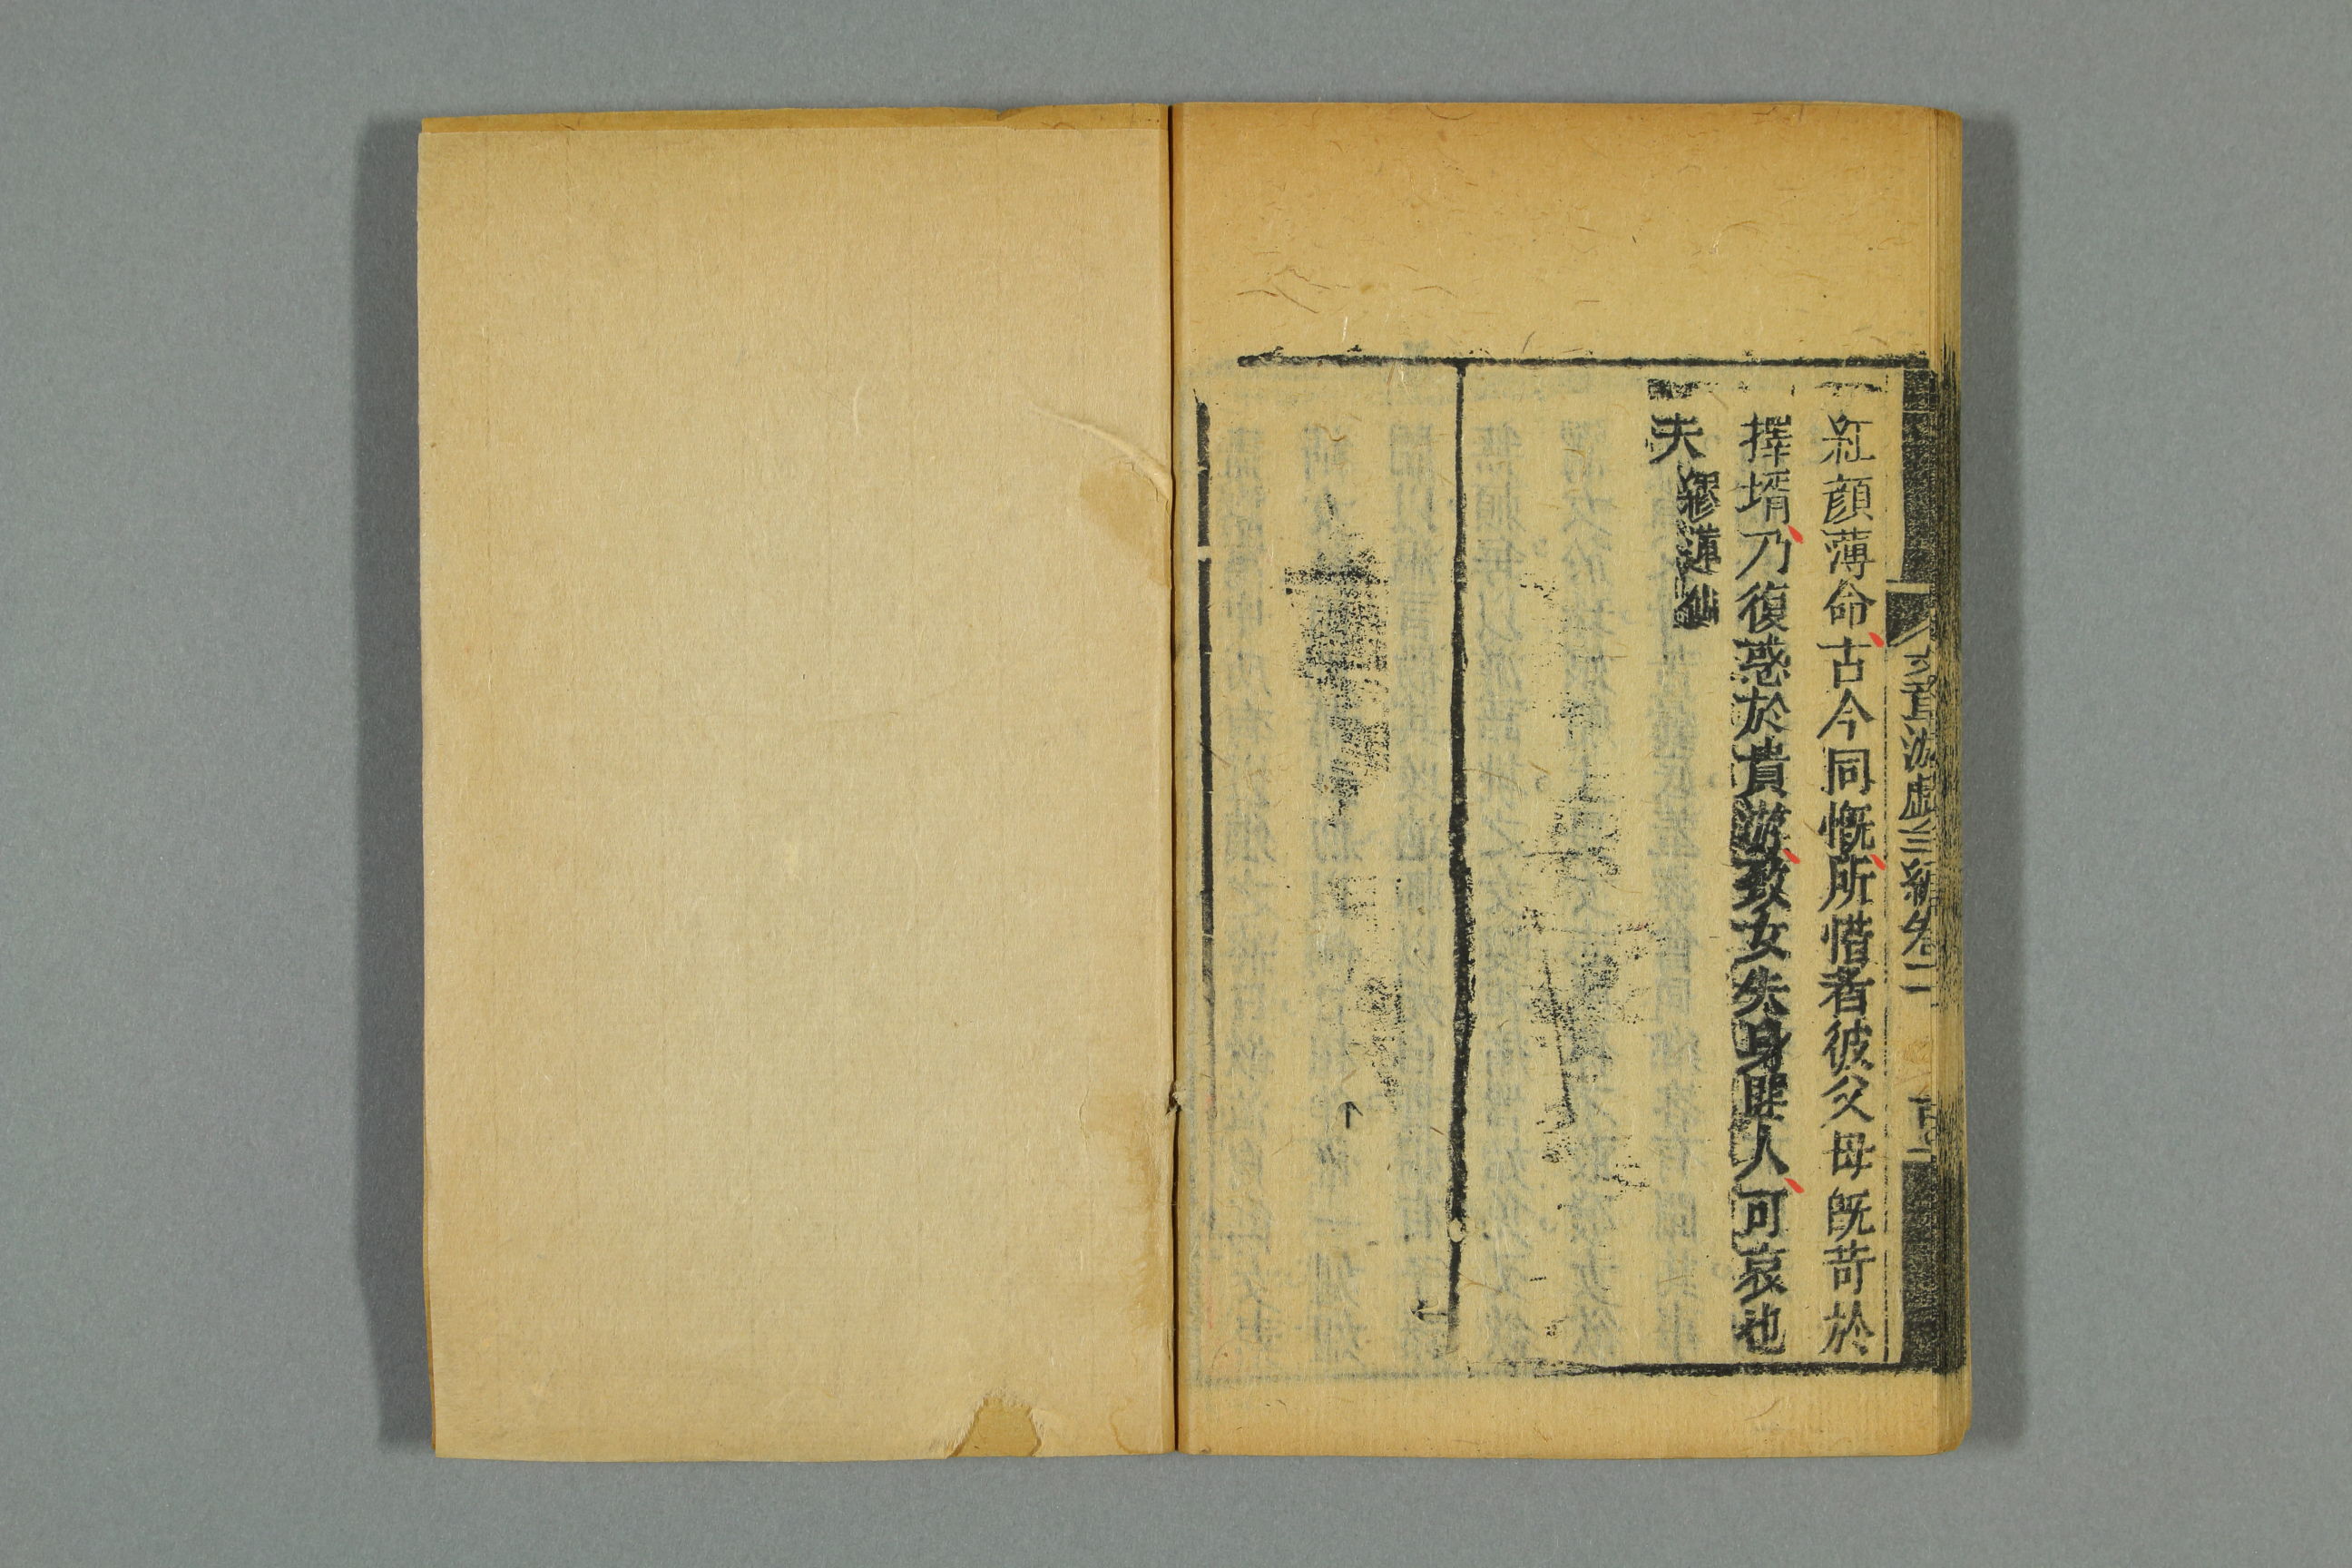 紅顏薄命古今同慨所惜者彼父母既苛於
擇壻乃復惑於貴游致女失身匪人可哀也
夫 繆蓮仙
文章游戲三編卷二